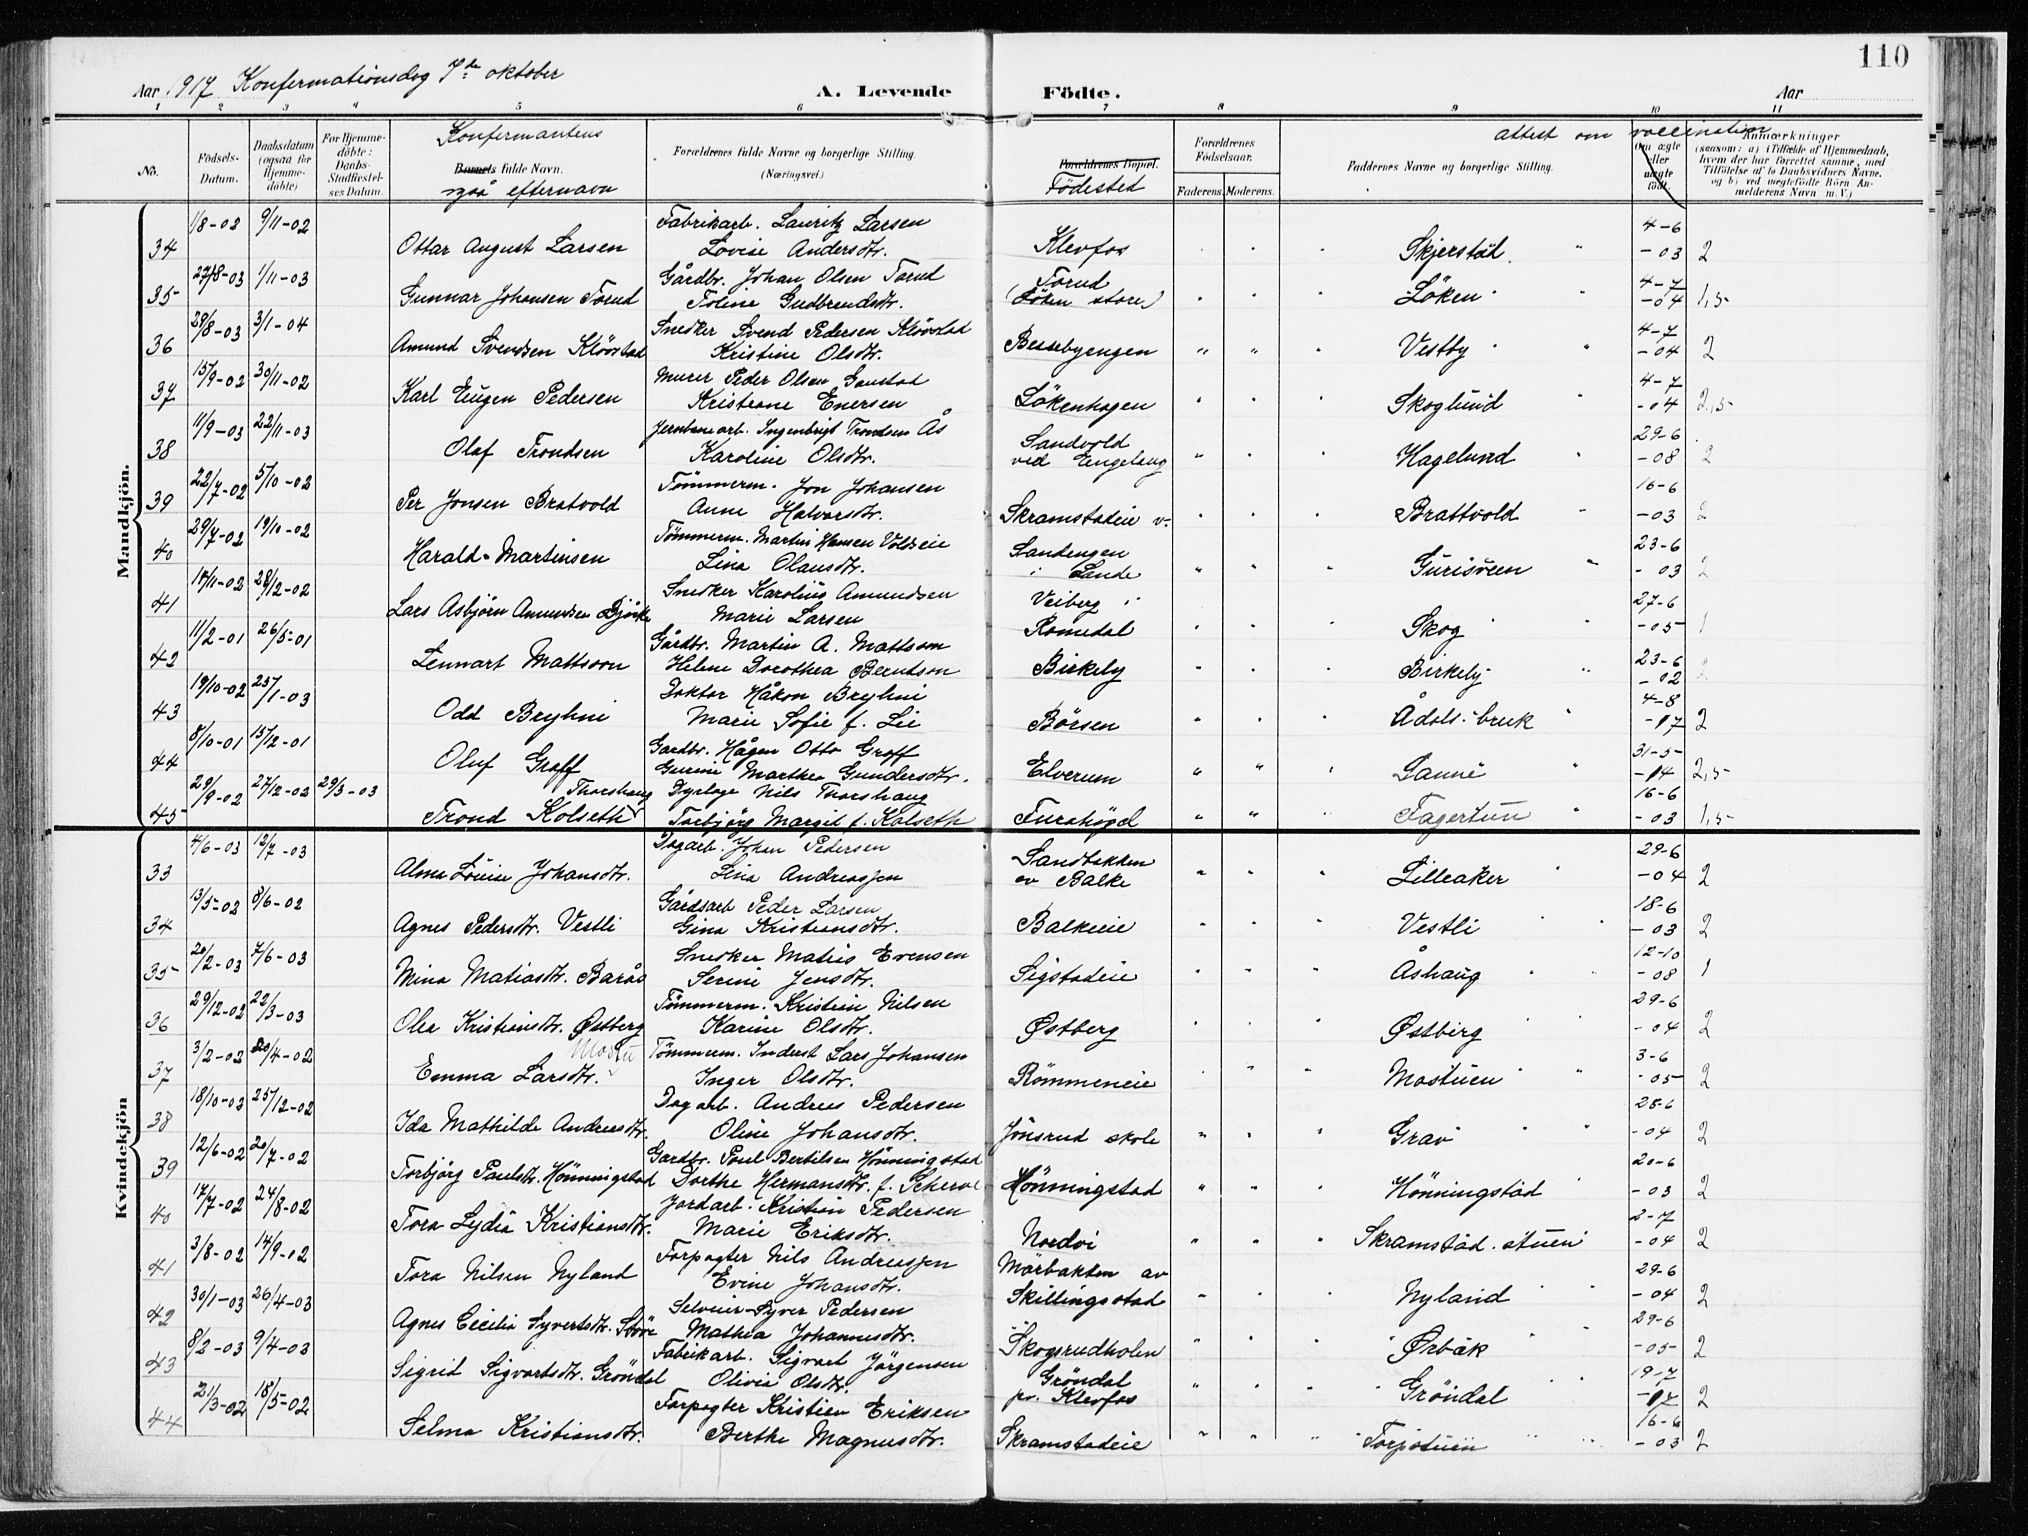 110
Aar 1917 Konfermationsdag 7de oktober A. Levende Födte. Aar
1 2 3 4 5 6 7 8 9 10 11
No. Födsels-Datum. Daabsdatum (ogsaa for Hjemmedöbte) For Hjemmedöbte: Daabs-Stadfæstelses Datum. Konfermantens Barnets fulde Navn. også efternavn Forældrenes fulde Navne og borgerlige Stilling. (Næringsvei.) Forældrenes Bopæl. Födested Forældrenes Födselsaar. Faderens. Moderens. Faddernes Navne og borgerlige Stilling. attest om vaccination Om ægte eller uægte födt. Anmærkninger (saasom: a) i Tilfælde af Hjemmedaab, hvem der har forrettet samme, med Tilföielse af to Daabsvidners Navne, og b) ved uegtefödte Börn Anmelderens Navn m. V.)
Mandkjön.
34 1/8-02 9/11-02 Ottar August Larsen Fabrikarb. Lauritz Larsen Lovise Andersdtr. Klevfos Skjerstad 4-6 -03 2
35 27/8-03 1/11-03 Gunnar Johansen Torud Gårdbr. Johan Olsen Torud Toline Gudbrendsdtr. Torud (Löken store) Löken 4-7 -04 1,5
36 29/8-03 3/1-04 Amund Svendsen Klövstad Snedker Svend Pedersen Klövstad Kristine Olsdtr. Bessebyengen " " Vestby 4-7 -04 2
37 15/9-02 30/11-02 Karl Eugen Pedersen Murer Peder Olsen Gaustad Kristiane Enersen Lökenhagen Skoglund 4-7 -04 2,5
38 11/9-03 22/11-03 Olaf Trondsen Jernbanearb. Ingenbrigt Trondsen Ås Karoline Olsdtr. Sandvold ved Engelaug Hagelund 29-6 -08 2
39 22/7-02 5/10-02 Per Jonsen Bratvold Tömmerm. Jon Johansen Anne Halvorsdtr. Skramstadeie v. Brattvold 16-6 -03 2
40 29/7-02 19/10-02 Harald Martinsen Tömmerm. Martin Hansen Voldseie Lina Olausdtr. Sandengen i Sande Gurisveen 23-6 -03 2
41 14/11-02 28/12-02 Lars Asbjörn Amundsen Björke Snedker Karolius Amundsen Marie Larsen Veiberg i Romedal Skog 27-6 -05 1
42 11/2-01 26/5-01 Lennart Mattsson Gårdbr. Martin A. Mattsson Helene Dorothea Berntson Birkely Birkely 23-6 -02 2
43 19/10-02 25/1-03 Odd Bryhni Doktor Håkon Bryhni Marie Sofie f. Lie Börsen Ådals-bruk 4-8 -17 2
44 8/10-01 15/12-01 Oluf Graff Gardbr. Hågen Otto Graff Gurine Marthea Gundersdtr. Elverum " " Sanne 31-5 -14 2,5
45 29/9-02 27/12-02 29/3-03 Trond Kolseth Thorshaug Dyrlæge Nils Thorshaug Torbjörg Margit f. Kolseth Furuhögd " " Fagertun 16-6 -03 1,5
Kvindekjön
33 4/6-03 12/7-03 Alma Lovise Johansdtr. Dagarb. Johan Pedersen Lina Andreassen Sandbakken av Balke Lilleaker 29-6 -04 2
34 13/5-02 8/6-02 Agnes Pedersdtr. Vestli Gårdsarb Peder Larsen Gina Kristiansdtr. Balkeeie Vestli 18-6 -03 2
35 20/2-03 7/6-03 Mina Matiasdtr. Barås Snedker Matias Evensen Serine Jensdtr. Sigstadeie Åshaug 12-10 -08 1
36 29/12-02 22/3-03 Olea Kristiansdtr. Østberg Tömmerm. Kristian Nilsen Karine Olsdtr. Østberg Østberg 29-6 -04 2
37 3/2-02 20/4-02 Emma Larsdtr. Mostu Tömmerm. Inderst Lars Johansen Inger Olsdtr. Römmeneie Mostuen 3-6 -05 2
38 18/10-03 25/12-02 Ida Mathilde Andreasdtr. Dagarb. Andreas Pedersen Oline Johansdtr. Jönsrud skole Grav 28-6 -04 2
39 12/6-02 20/7-02 Torbjörg Paulsdtr. Hönningstad Gardbr. Paul Bertilsen Hönningstad Dorthe Hermansdtr. f. Scherve Hönningstad Hönningstad 20-6 -03 2
40 17/7-02 24/8-02 Tora Lydia Kristiansdtr. Jordarb. Kristian Pedersen Marie Eriksdtr. Nordvi Skramstad-stuen 2-7 -04 2
41 3/8-02 14/9-02 Tora Nilsen Nyland Forpagter Nils Andreassen Evine Johansdtr. Mörbakken av Skillingsstad Nyland 29-6 -04 2
42 30/1-03 26/4-03 Agnes Cecilia Syvertsdtr. Selveier Syver Pedersen Mathea Johannesdtr. Skogsrudholen Ørbak 29-6 -05 2
43 8/2-03 9/4-03 Sigrid Sigvartsdtr. Gröndal Fabrikarb. Sigvart Jörgensen Olivia Olsdtr. Gröndal pr. Klevfos Gröndal 19-7 -17 2
44 21/3-02 18/5-02 Selma Kristiansdtr. Forpagter Kristian Eriksen Berthe Magnusdtr. Skramstadeie Torpstuen 16-6 -03 2